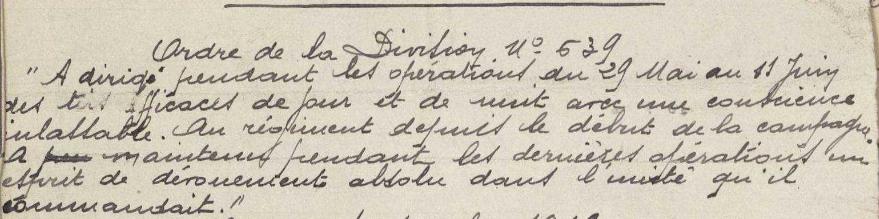 Ordre de la Division No 539
"A dirigé pendant les opérations du 29 Mai au 11 Juin
des tirs efficaces de jour et de nuit avec une conscience
inlassable. Au régiment depuis le début de la campagne.
A maintenu pendant les dernières opérations un
esprit de dévouement absolu dans l'unité qu'il
commandait."